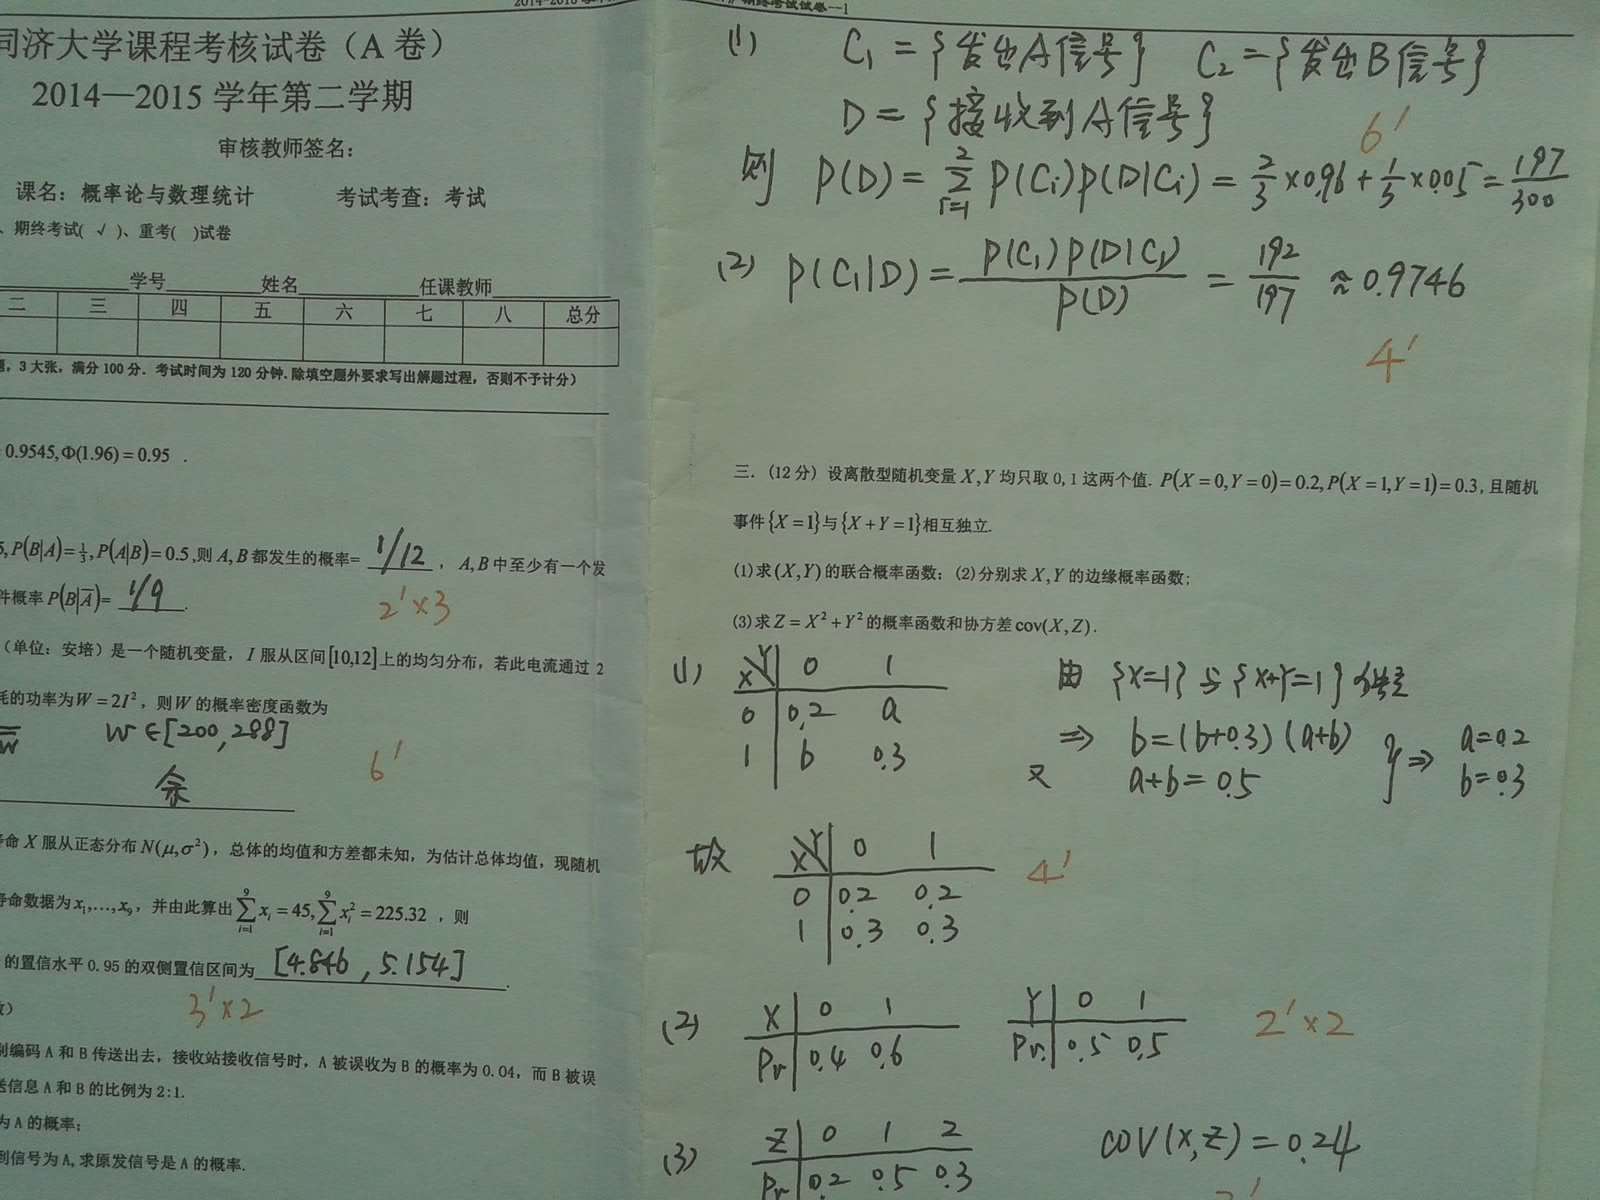 同济大学课程考核试卷（A 卷）
2014—2015 学年第二学期
审核教师签名：
课名：概率论与数理统计 考试考查：考试
、期终考试( √ )、重考( )试卷
学号 姓名 任课教师
二 三 四 五 六 七 八 总分
，3 大张，满分 100 分．考试时间为 120 分钟．除填空题外要求写出解题过程，否则不予计分）
0.9545, Φ(1.96) = 0.95 .
P(B|A) = 1/3, P(A|B) = 0.5 , 则 A, B 都发生的概率= 1/12 , A, B 中至少有一个发
件概率 P(B|A̅) = 1/9 .
2′×3
（单位：安培）是一个随机变量，I 服从区间 [10,12] 上的均匀分布，若此电流通过 2
耗的功率为 W = 2I²，则 W 的概率密度函数为
W ∈ [200, 288]
余
6′
命 X 服从正态分布 N(μ,σ²)，总体的均值和方差都未知，为估计总体均值，现随机
寿命数据为 x₁,…,x₉，并由此算出 ∑_{i=1}^{9} x_i = 45, ∑_{i=1}^{9} x_i² = 225.32 ，则
的置信水平 0.95 的双侧置信区间为 [4.846 , 5.154] .
3′×2
别编码 A 和 B 传送出去，接收站接收信号时，A 被误收为 B 的概率为 0.04，而 B 被误
送信息 A 和 B 的比例为 2:1.
为 A 的概率；
到信号为 A, 求原发信号是 A 的概率.
2014-2015 期终考试试卷--1
(1) C₁ = {发出A信号} C₂ = {发出B信号}
D = {接收到A信号}
6′
则 P(D) = ∑_{i=1}^{2} P(Cᵢ)P(D|Cᵢ) = 2/3 ×0.96 + 1/3 ×0.05 = 197/300
(2) P(C₁|D) = P(C₁)P(D|C₁)/P(D) = 192/197 ≈ 0.9746
4′
三．(12 分) 设离散型随机变量 X, Y 均只取 0, 1 这两个值. P(X = 0, Y = 0) = 0.2, P(X = 1, Y = 1) = 0.3, 且随机
事件 {X = 1} 与 {X + Y = 1} 相互独立.
(1) 求 (X, Y) 的联合概率函数；(2) 分别求 X, Y 的边缘概率函数；
(3) 求 Z = X² + Y² 的概率函数和协方差 cov(X, Z).
(1) X Y 0 1 由 {X=1} 与 {X+Y=1} 独立
0 0.2 a ⇒ b = (b+0.3)(a+b) } ⇒ a=0.2
1 b 0.3 又 a+b = 0.5 b=0.3
故 X Y 0 1
0 0.2 0.2
1 0.3 0.3
4′
(2) X 0 1 Y 0 1
Pr 0.4 0.6 Pr. 0.5 0.5
2′×2
(3) Z 0 1 2 COV(X,Z) = 0.24
Pr 0.2 0.5 0.3